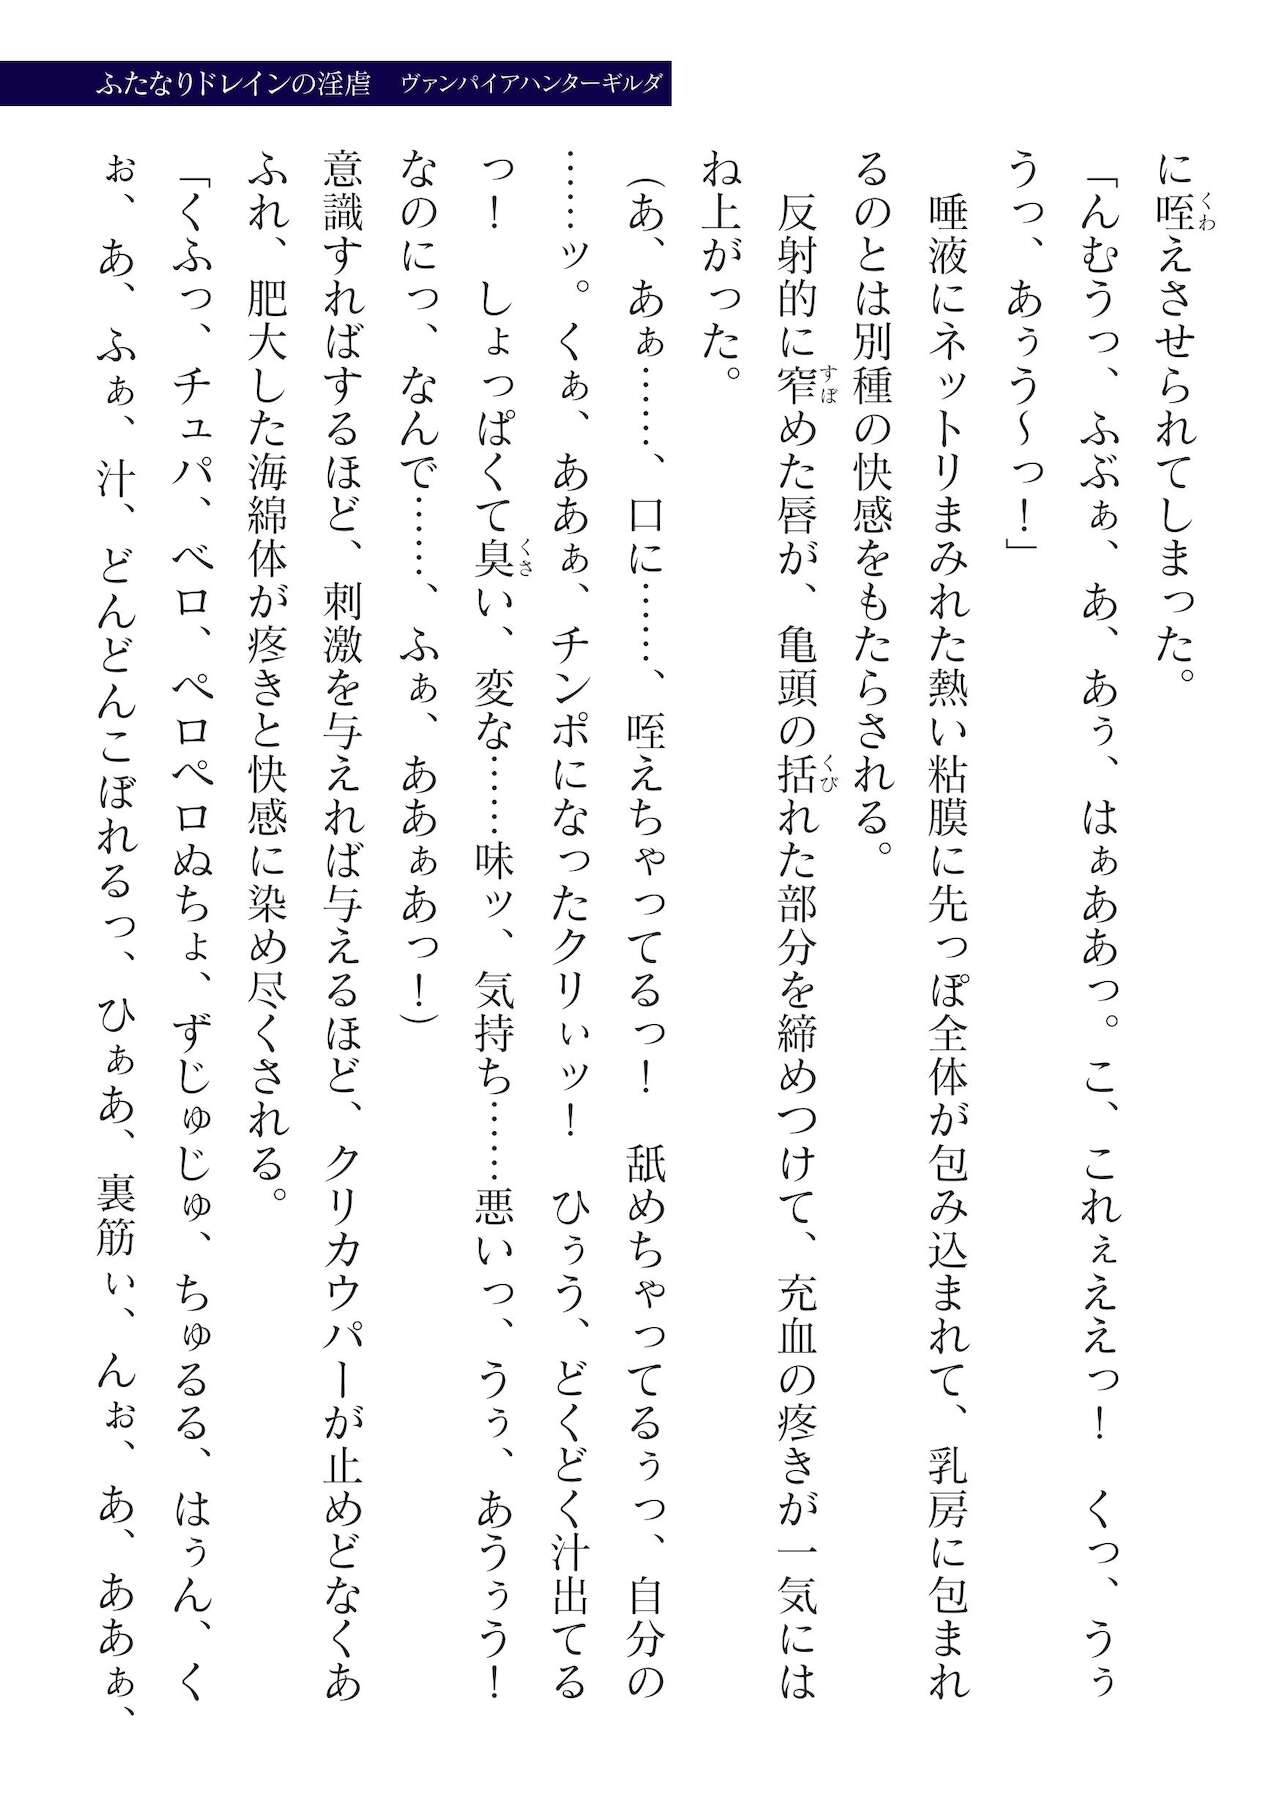 ふたなりドレインの淫虐　ヴァンパイアハンターギルダ
に咥えさせられてしまった。
「んむうっ、ふぶぁ、あ、あぅ、はぁああっ。こ、これぇええっ！　くっ、うぅ
うっ、あぅう～っ！」
　唾液にネットリまみれた熱い粘膜に先っぽ全体が包み込まれて、乳房に包まれ
るのとは別種の快感をもたらされる。
　反射的に窄めた唇が、亀頭の括れた部分を締めつけて、充血の疼きが一気には
ね上がった。
（あ、あぁ……、口に……、咥えちゃってるっ！　舐めちゃってるぅっ、自分の
……ッ。くぁ、ああぁ、チンポになったクリぃッ！　ひぅう、どくどく汁出てる
っ！　しょっぱくて臭い、変な……味ッ、気持ち……悪いっ、うぅ、あうぅう！
なのにっ、なんで……、ふぁ、ああぁあっ！）
意識すればするほど、刺激を与えれば与えるほど、クリカウパーが止めどなくあ
ふれ、肥大した海綿体が疼きと快感に染め尽くされる。
「くふっ、チュパ、ベロ、ペロペロぬちょ、ずじゅじゅ、ちゅるる、はぅん、く
ぉ、あ、ふぁ、汁、どんどんこぼれるっ、ひぁあ、裏筋ぃ、んぉ、あ、ああぁ、